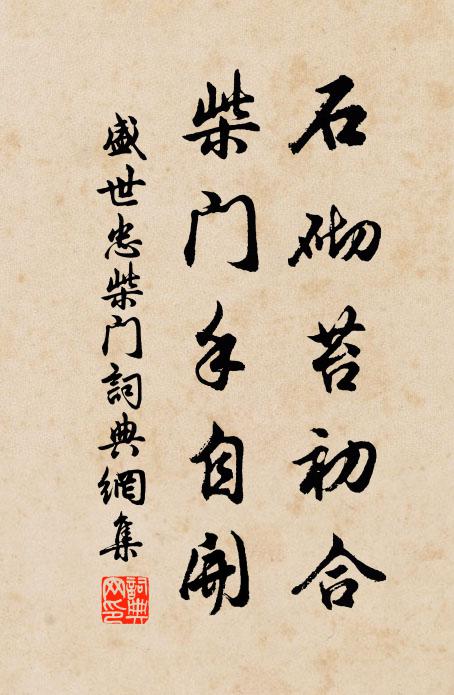 石砌苔初合
柴门手自開
盛世忠柴门詞典網集
詞典网印